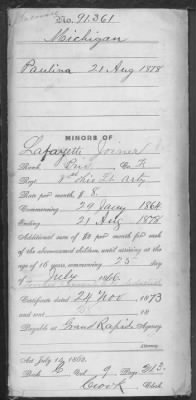 No. 91.361
Michigan
Paulina 21 Aug 1878
MINORS OF
Lafayette Joiner
Rank Priv Co. F
Reg't 1st Arty
Rate per month, $ 8
Commencing 29 Jany 1864
Ending 21 Aug 1878
Additional sum of $2 per month for each
of the abovenamed children, until arriving at the
age of 16 years, commencing 25 day
of July 1866
Certificate dated 24 Nov 1873
and sent
Payable at Grand Rapids Agency
Act July 14, 1862.
Book Vol 9 Page 213.
Crook Clerk.